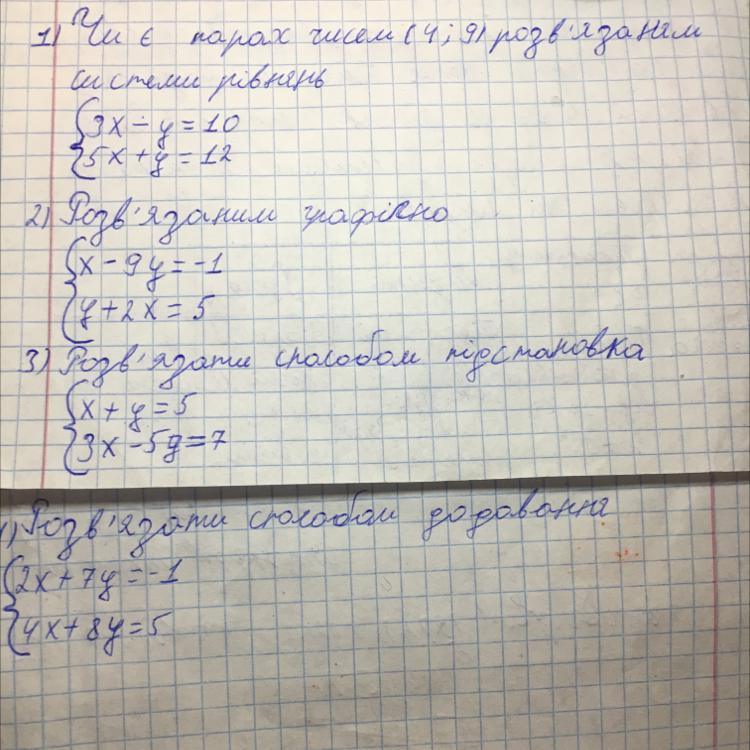 1) Чи є парах чисем (4; 9) розв'язаням
системи рівнянь
{3x - y = 10
{5x + y = 12
2) Розв'язаним графікно
{x - 9y = -1
{y + 2x = 5
3) Розв'язати способом підстановка
{x + y = 5
{3x - 5y = 7
1) Розв'язати способом додавання
{2x + 7y = -1
{4x + 8y = 5